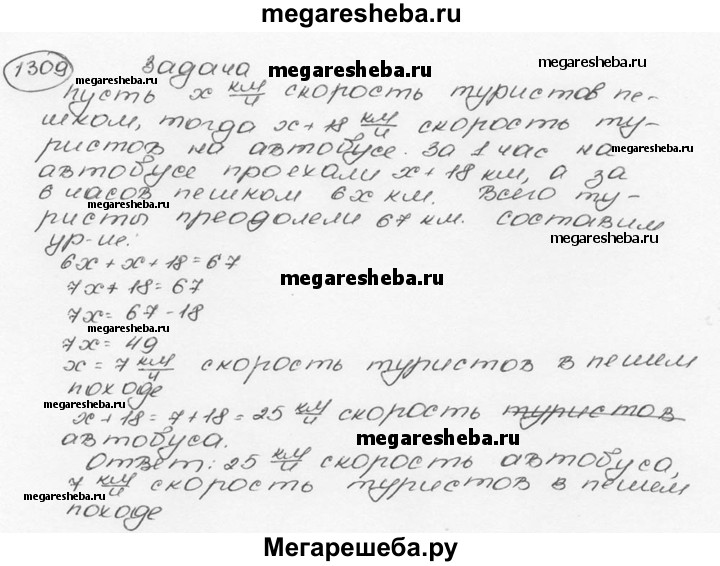 megaresheba.ru
1309 Задача
megaresheba.ru megaresheba.ru megaresheba.ru
пусть x км/ч скорость туристов пе-
шком, тогда x+18 км/ч скорость ту-
megaresheba.ru megaresheba.ru
ристов на автобусе. За 1 час на
автобусе проехали x+18 км, а за
6 часов пешком 6x км. Всего ту-
megaresheba.ru megaresheba.ru
ристы преодолели 67 км. Составим
ур-ие:
megaresheba.ru
6x+x+18=67
megaresheba.ru
7x+18=67
7x=67-18
megaresheba.ru
7x=49
x=7 км/ч скорость туристов в пешем
megaresheba.ru
походе
megaresheba.ru
x+18=7+18=25 км/ч скорость туристов
автобуса.
megaresheba.ru
Ответ: 25 км/ч скорость автобуса,
megaresheba.ru megaresheba.ru
7 км/ч скорость туристов в пешем
походе
Мегарешеба.ру